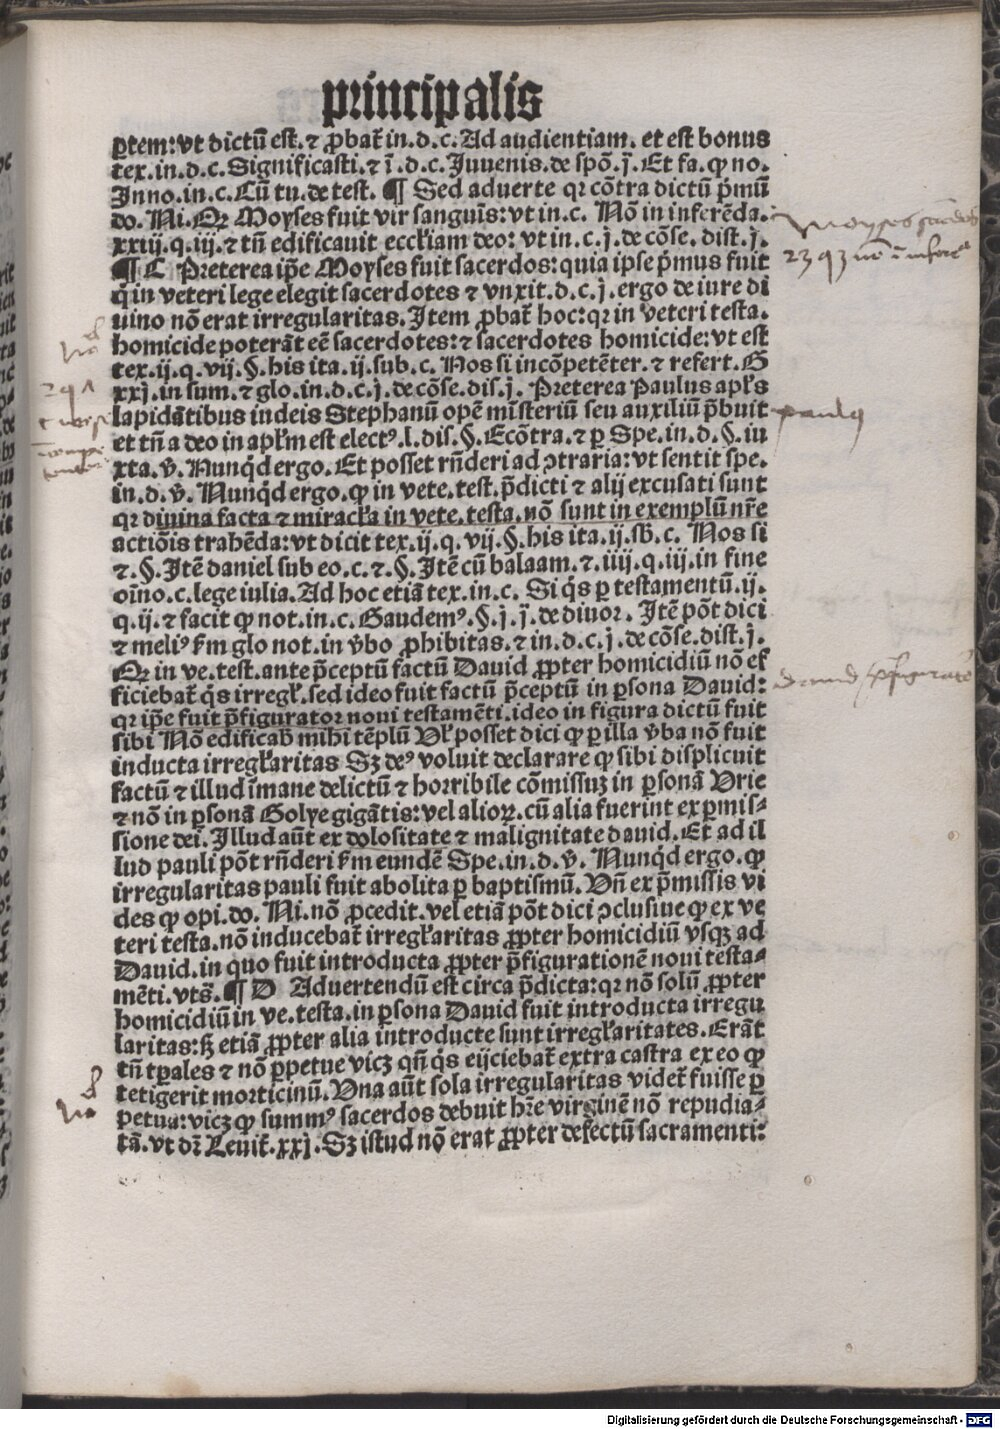 principalis
ꝑtem: vt dictū est. ⁊ ꝓbat̄ in. d. c. Ad audientiam. et est bonus
tex. in. d. c. Significasti. ⁊ ī. d. c. Juuenis. de spō. j. Et fa. ꝙ no.
Inno. in. c. Cū tu. de test. ¶ Sed aduerte qꝛ cōtra dictū p̄mū
do. Ni. Qꝛ Moyses fuit vir sanguīs: vt in. c. Nō in inferēda.
xxiij. q. iij. ⁊ tn̄ edificauit eccl'iam deo: vt in. c. j. de cōse. dist. j.
¶ C Preterea ip̄e Moyses fuit sacerdos: quia ipse p̄mus fuit
q' in veteri lege elegit sacerdotes ⁊ vnxit. d. c. j. ergo de iure di
uino nō erat irregularitas. Item ꝓbat̄ hoc: qꝛ in veteri testa.
homicide poterāt eē sacerdotes: ⁊ sacerdotes homicide: vt est
tex. ij. q. vij. §. his ita. ij. sub. c. Nos si incōpetēter. ⁊ refert. G
xxj. in sum. ⁊ glo. in. d. c. j. de cōse. dis. j. Preterea Paulus apl's
lapidātibus iudeis Stephanū opē misteriū seu auxiliū p̄buit
et tn̄ a deo in apl'm est electꝰ. l. dis. §. Ecōtra. ⁊ ꝑ Spe. in. d. §. iu
xta. v̄. Nunq'd ergo. Et posset rn̄deri ad ꝯtraria: vt sentit spe.
in. d. v̄. Nunq'd ergo. ꝙ in vete. test. p̄dicti ⁊ alij excusati sunt
qꝛ diuina facta ⁊ miracl'a in vete. testa. nō sunt in exemplū nr̄e
actiōis trahēda: vt dicit tex. ij. q. vij. §. his ita. ij. sb̄. c. Nos si
⁊. §. Itē daniel sub eo. c. ⁊. §. Itē cū balaam. ⁊. iiij. q. iij. in fine
oīno. c. lege iulia. Ad hoc etiā tex. in. c. Si q's ꝑ testamentū. ij.
q. ij. ⁊ facit ꝙ not. in. c. Gaudemꝰ. §. j. j. de diuor. Itē pōt dici
⁊ meliꝰ s'm glo not. in v̄bo ꝓhibitas. ⁊ in. d. c. j. de cōse. dist. j.
Qꝛ in ve. test. ante p̄ceptū factū Dauid ꝓpter homicidiū nō ef
ficiebat̄ q's irregl'. sed ideo fuit factū p̄ceptū in ꝑsona Dauid:
qꝛ ip̄e fuit p̄figurator noui testamēti. ideo in figura dictū fuit
sibi Nō edificab̄ mihi tēplū Vl' posset dici ꝙ ꝑ illa v̄ba nō fuit
inducta irregl'aritas Sꝫ deꝰ voluit declarare ꝙ sibi displicuit
factū ⁊ illud īmane delictū ⁊ horribile cōmissuꝫ in ꝑsonā Vrie
⁊ nō in ꝑsonā Golye gigātis: vel alioꝝ. cū alia fuerint ex ꝑmis-
sione dei. Illud aūt ex dolositate ⁊ malignitate dauid. Et ad il
lud pauli pōt rn̄deri s'm eundē Spe. in. d. v̄. Nunq'd ergo. ꝙ
irregularitas pauli fuit abolita ꝑ baptismū. Vn̄ ex p̄missis vi
des ꝙ opi. do. Ni. nō ꝓcedit. vel etiā pōt dici ꝯclusiue ꝙ ex ve
teri testa. nō inducebat̄ irregl'aritas ꝓpter homicidiū vsqꝫ ad
Dauid. in quo fuit introducta ꝓpter p̄figurationē noui testa-
mēti. vt s̄. ¶ D Aduertendū est circa p̄dicta: qꝛ nō solū ꝓpter
homicidiū in ve. testa. in ꝑsona Dauid fuit introducta irregu
laritas: sꝫ etiā ꝓpter alia introducte sunt irregl'aritates. Erāt
tn̄ tꝑales ⁊ nō ꝑpetue vicꝫ qn̄ q's eijciebat̄ extra castra ex eo ꝙ
tetigerit morticinū. Vna aūt sola irregularitas videt̄ fuisse ꝑ
petua: vicꝫ ꝙ summꝰ sacerdos debuit hr̄e virginē nō repudia-
tā. vt dr̄ Leuit̄. xxj. Sꝫ istud nō erat ꝓpter defectū sacramenti:
Moyses sacerdos
23 q 3 nō ī inferē
paulꝰ
dauid p̄figurator
Digitalisierung gefördert durch die Deutsche Forschungsgemeinschaft - DFG